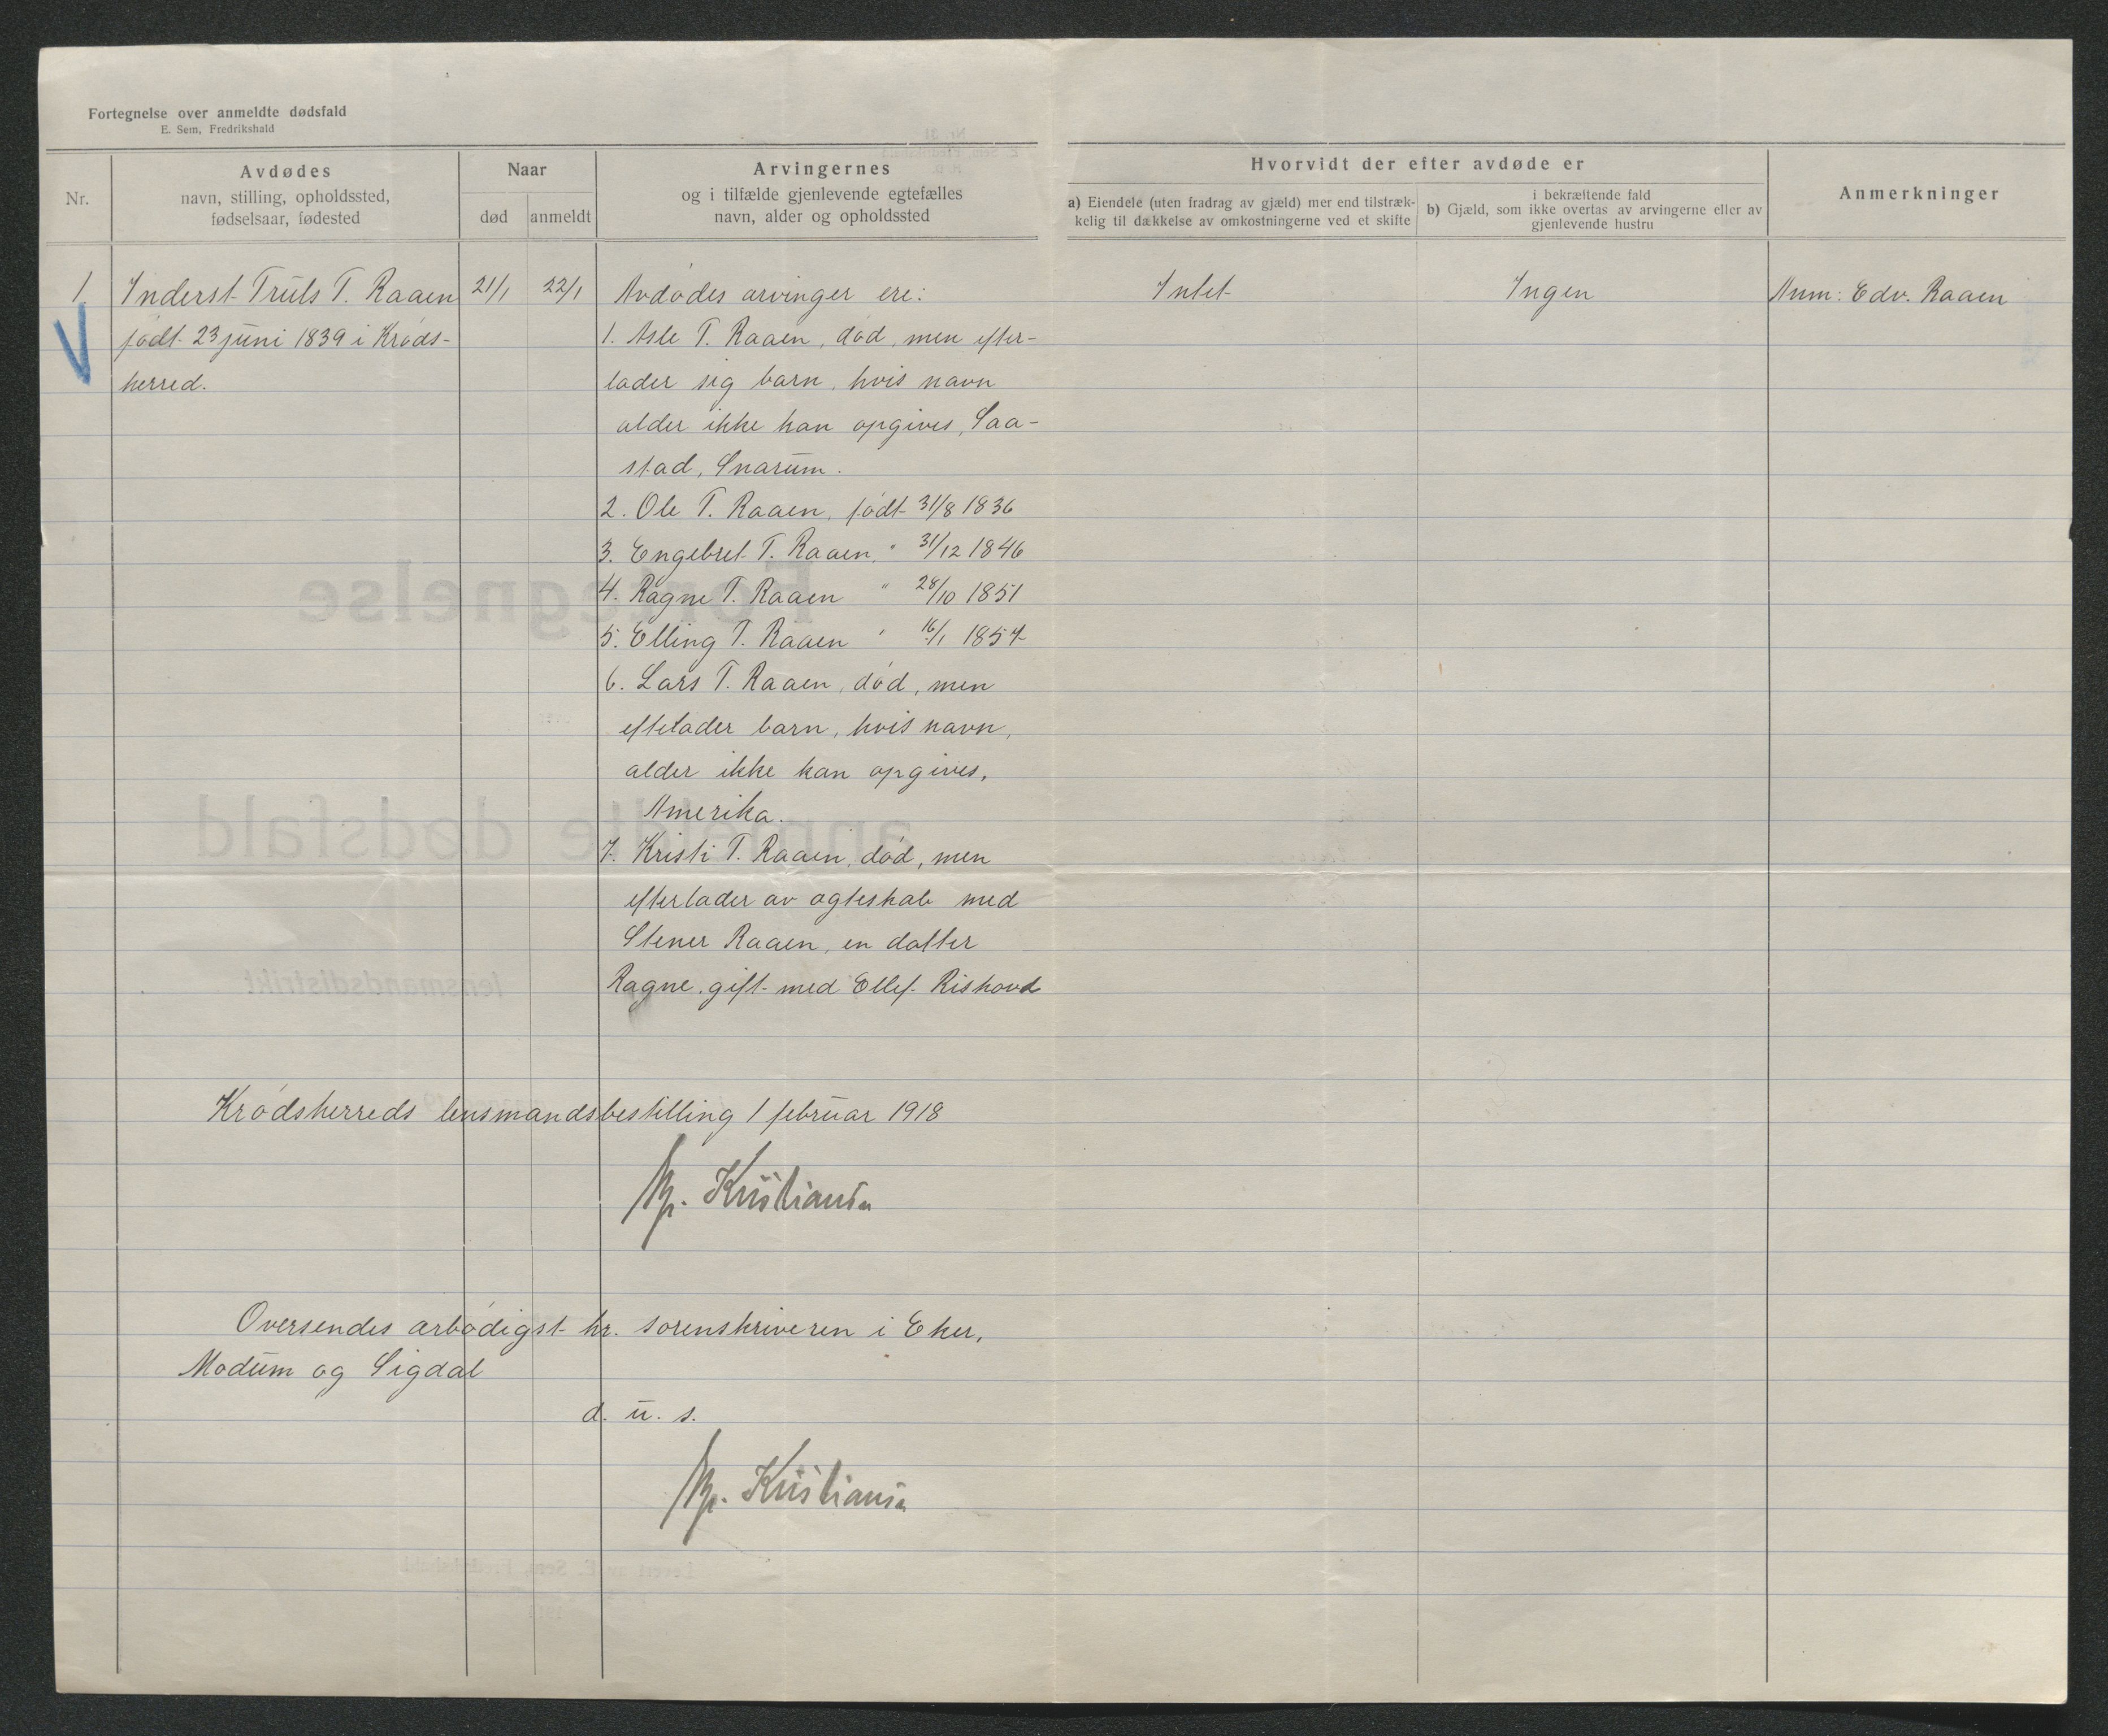 Fortegnelse over anmeldte dødsfald
E. Sem, Fredrikshald
Nr.
Avdødes
navn, stilling, opholdssted,
fødselsaar, fødested
Naar
død
anmeldt
Arvingernes
og i tilfælde gjenlevende egtefælles
navn, alder og opholdssted
Hvorvidt der efter avdøde er
a) Eiendele (uten fradrag av gjæld) mer end tilstræk-
kelig til dækkelse av omkostningerne ved et skifte
i bekræftende fald
b) Gjæld, som ikke overtas av arvingerne eller av
gjenlevende hustru
Anmerkninger
1 Inderst Truls T. Raaen 21/1 22/1 Avdødes arvinger ere: Intet Ingen Anm: Edv. Raaen
født 23 juni 1839 i Krøds-
herred.
1. Asle T. Raaen, død, men efter-
lader sig barn, hvis navn
alder ikke kan opgives, Saa-
stad, Snarum.
2. Ole T. Raaen, født 31/8 1836
3. Engebret T. Raaen, " 31/12 1846
4. Ragne T. Raaen " 28/10 1851
5. Elling T. Raaen " 16/1 1854
6. Lars T. Raaen, død, men
eftelader barn, hvis navn,
alder ikke kan opgives,
Amerika.
7. Kristi T. Raaen, død, men
efterlader av ægteskab med
Stener Raaen, en datter
Ragne, gift med Ellef Rishovd
Krødsherreds lensmandsbestilling 1 februar 1918
Kristiansen
Oversendes ærbødigst hr. sorenskriveren i Eker,
Modum og Sigdal
d. u. s.
Kristiansen
Fortegnelse
anmeldte dødsfald
lensmandsdistrikt